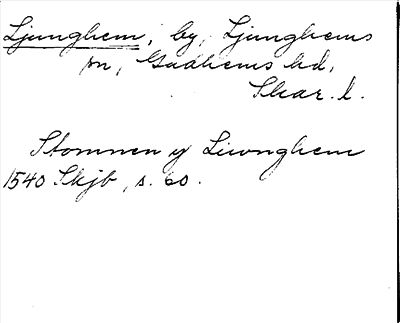 Ljunghem, by, Ljunghems
sn, Gudhems hd,
Skar. l.
Stommen y Liwnghem
1540 Skjb, s. 60.